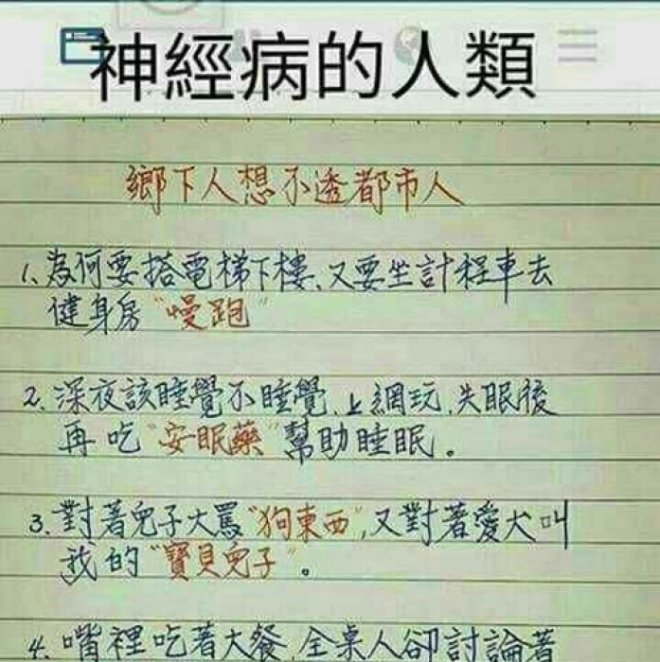 神經病的人類
鄉下人想不透都市人
1. 為何要搭電梯下樓、又要坐計程車去
健身房“慢跑”
2. 深夜該睡覺不睡覺、上網玩、失眠後
再吃“安眠藥”幫助睡眠。
3. 對著兒子大罵“狗東西”,又對著愛犬叫
我的“寶貝兒子”。
4. 嘴裡吃著大餐、全桌人卻討論著